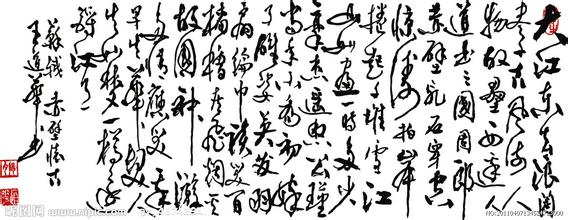 大江东去浪淘
尽千古风流人
物故垒西边人
道是三國周郎
赤壁乱石穿空
惊涛拍岸
捲起千堆雪江
山如画一时多少
豪杰遥想公瑾
当年小乔初嫁
了雄姿英发羽
扇纶巾谈笑间
樯橹灰飞烟灭
故國神游
多情應笑我
早生華发人
生如梦一樽还
酹江月
苏轼 赤壁怀古
王道華书
昵图网 www.nipic.com